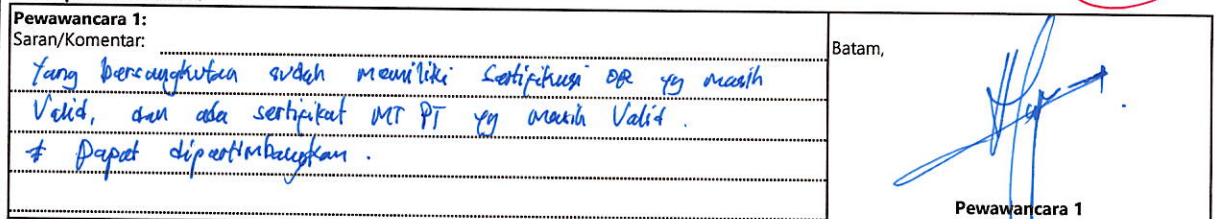 Pewawancara 1:
Saran/Komentar:
Yang bersangkutan sudah memiliki Sertifikasi OR yg masih
Valid, dan ada sertifikat MT PT yg masih Valid.
* Dapat dipertimbangkan.
Batam,
Pewawancara 1